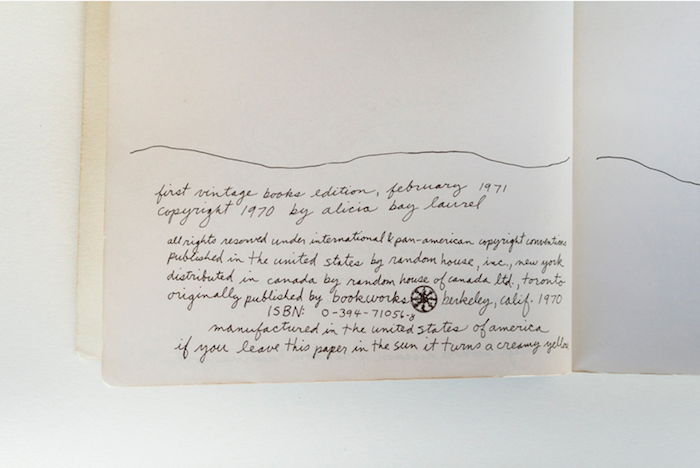 first vintage books edition, february 1971
copyright 1970 by alicia bay laurel
all rights reserved under international & pan-american copyright conventions
published in the united states by random house, inc., new york
distributed in canada by random house of canada ltd., toronto
originally published by bookworks berkeley, calif. 1970
ISBN: 0-394-71056-8
manufactured in the united states of america
if you leave this paper in the sun it turns a creamy yellow